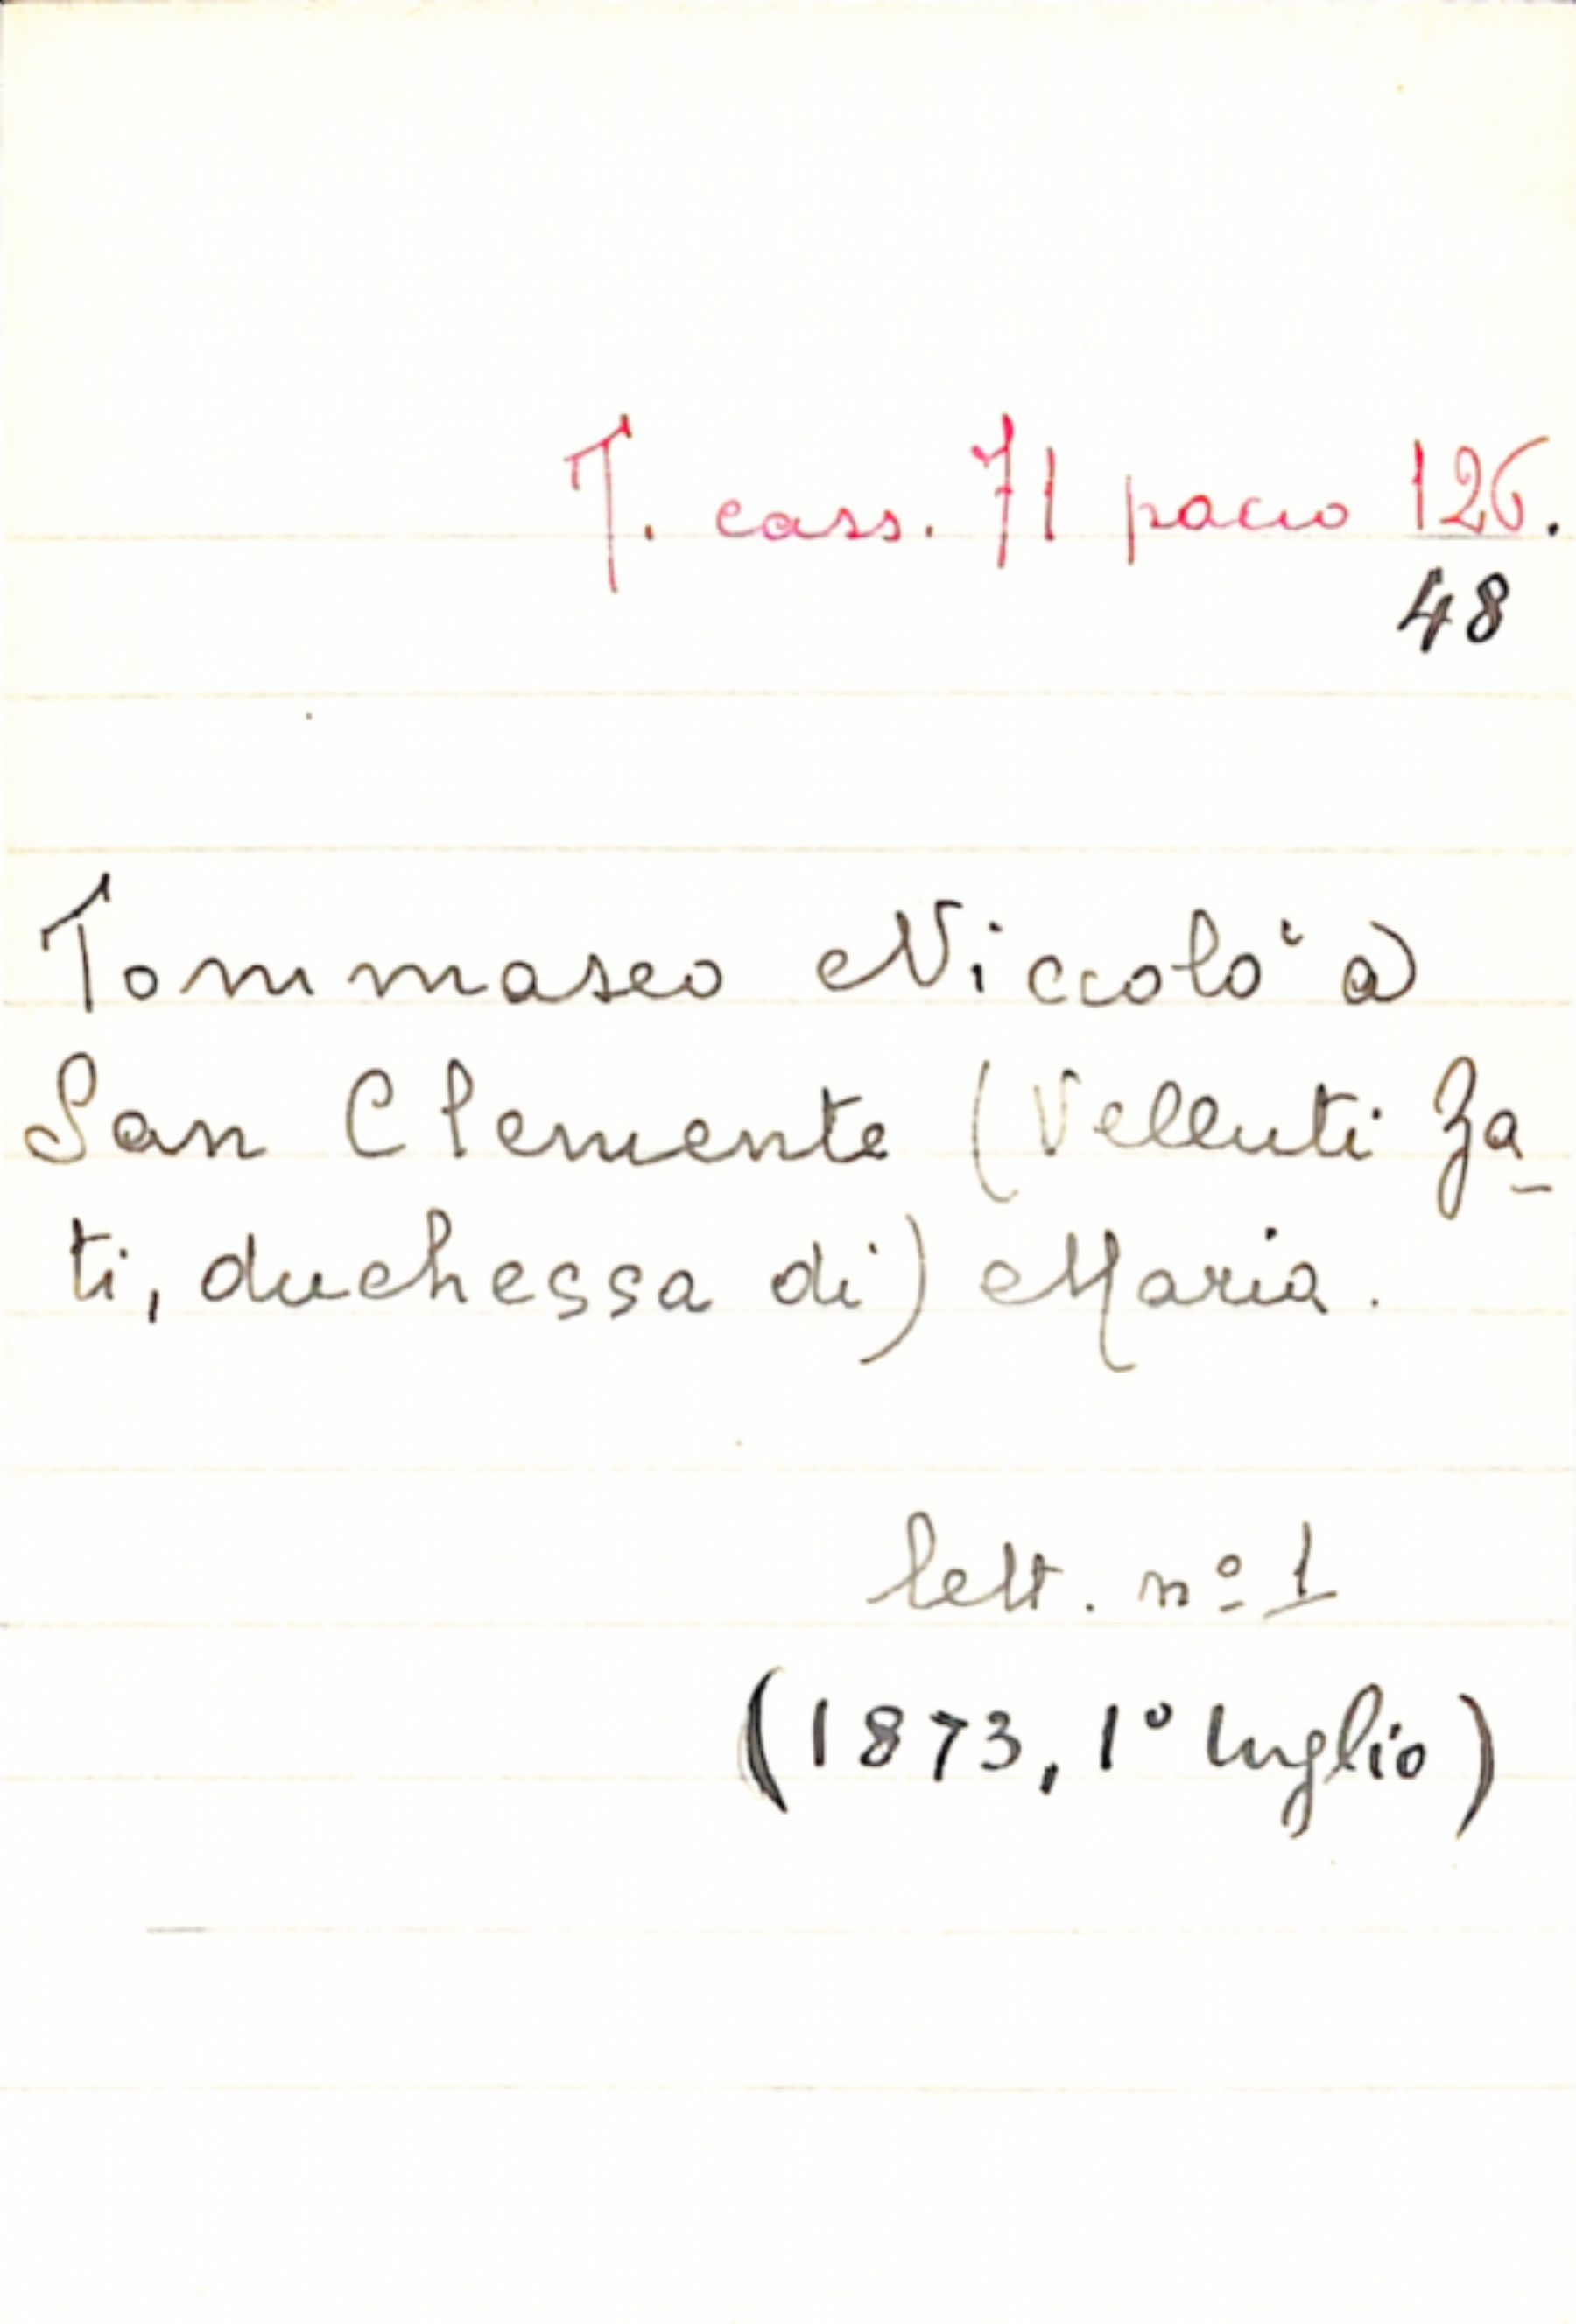 T. cass. 71 pacco 126.
48
Tommaseo Niccolò a
San Clemente (Velluti Za-
ti, duchessa di) Maria.
lett. nº 1
(1873, 1º luglio)